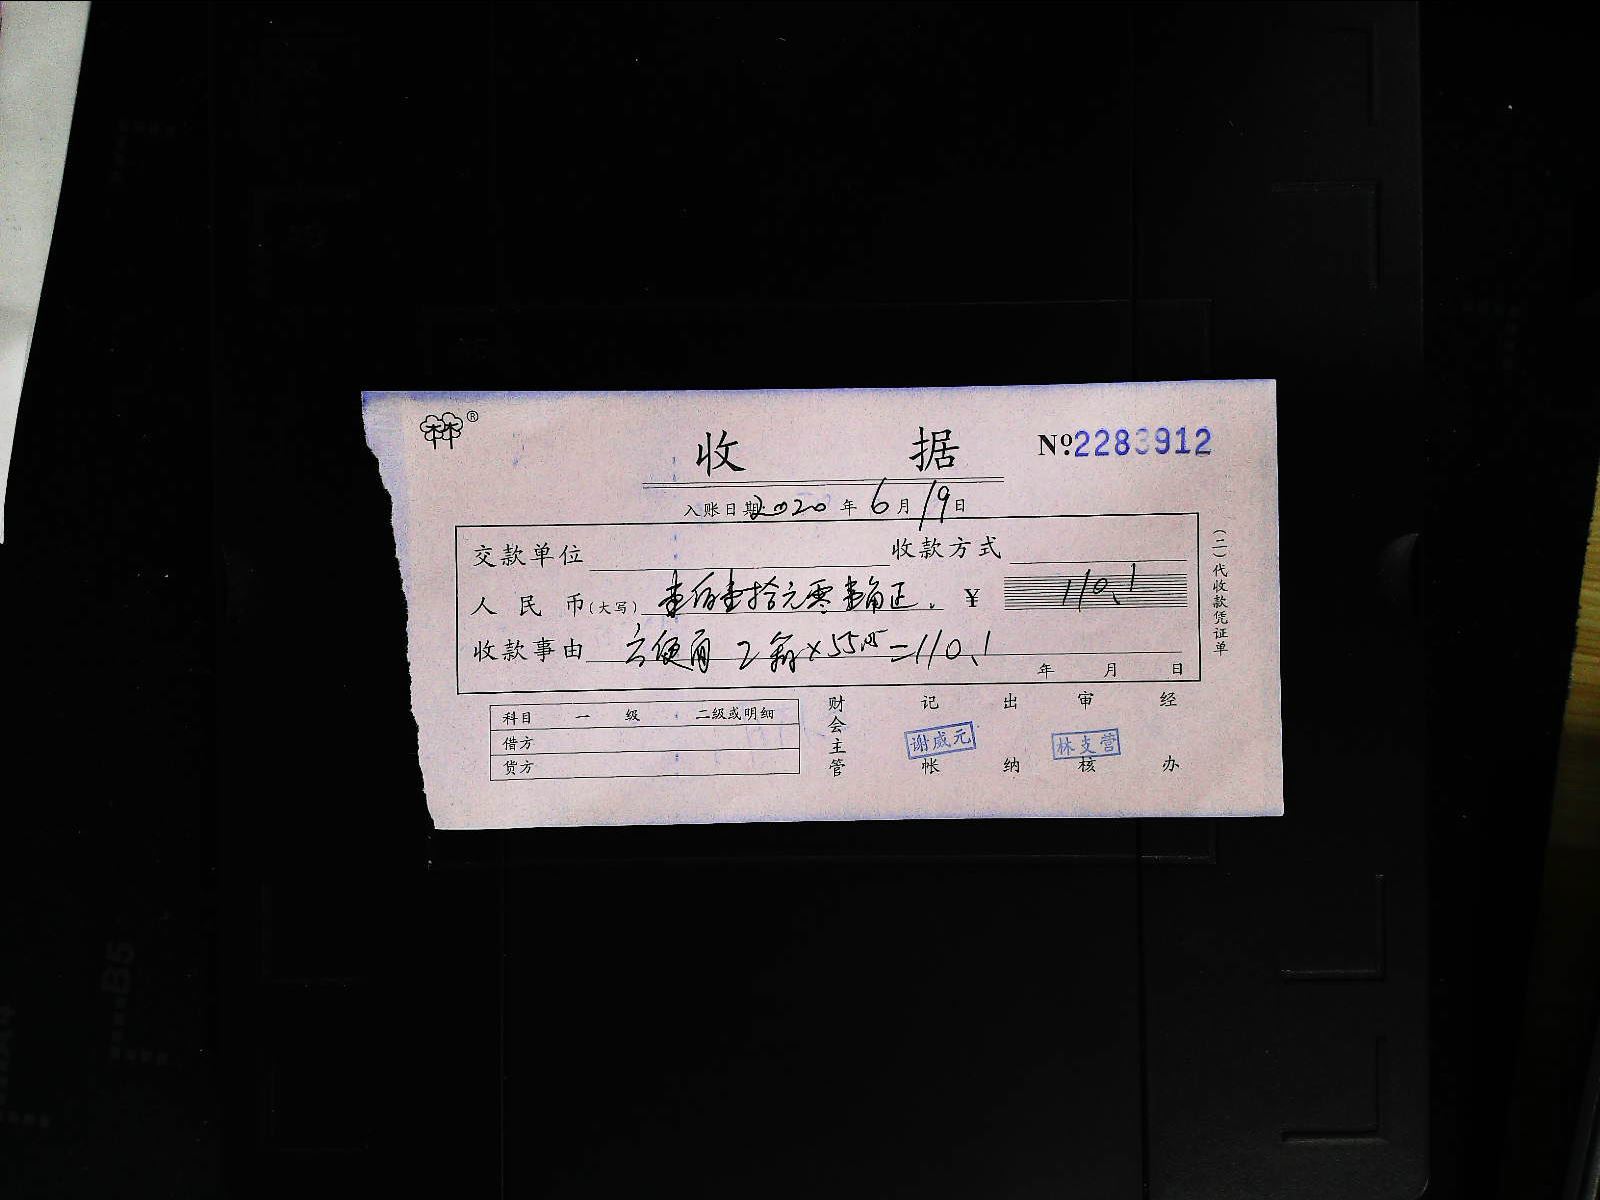 林®
收 据 №:2283912
入账日期 2020 年 6 月 19 日
交款单位 收款方式
人民币(大写) 壹佰壹拾元零壹角正. ¥ 110.1
收款事由 方便面 2箱×55.05=110.1
年 月 日
(二)代收款凭证单
科目 一 级 二级或明细
借方
货方
财会主管 记帐 出纳 审核 经办
谢威元 林支营
B5